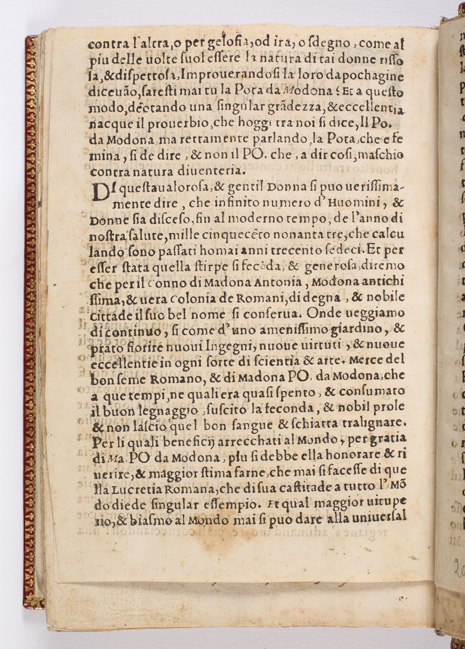 contra l'altra, o per gelosia, od ira, o sdegno, come al
piu delle uolte suol essere la natura di tai donne risso
sa, & dispettosa, Improuerandosi la loro dapochagine
diceuão, saresti mai tu la Pota da Modona? Et a questo
modo, dẽotando una singular grãdezza, & eccellentia
nacque il prouerbio, che hoggi tra noi si dice, Il Po.
da Modona, ma rettamente parlando, la Pota, che e fe
mina, si de dire, & non il PO. che, a dir cosi, maschio
contra natura diuenteria.
DI questa ualorosa, & gentil Donna si puo uerissima-
mente dire, che infinito numero d'Huomini, &
Donne sia disceso, fin al moderno tempo, de l'anno di
nostra salute, mille cinquecẽto nonanta tre, che calcu
lando sono passati homai anni trecento sedeci. Et per
esser stata quella stirpe si fecõda, & generosa, diremo
che per il conno di Madona Antonia, Modona antichi
ssima, & uera colonia de Romani, di degna, & nobile
cittade il suo bel nome si conserua. Onde ueggiamo
di continuo, si come d'uno amenissimo giardino, &
prato fiorite nuoui Ingegni, nuoue uirtuti, & nuoue
eccellentie in ogni sorte di scientia & arte. Merce del
bon seme Romano, & di Madona PO. da Modona, che
a que tempi, ne quali era quasi spento, & consumato
il buon legnaggio, suscito la feconda, & nobil prole
& non lascio quel bon sangue & schiatta tralignare.
Per li quali beneficij arrecchati al Mondo, per gratia
di Ma PO da Modona, piu si debbe ella honorare & ri
uerire, & maggior stima farne, che mai si facesse di que
lla Lucretia Romana, che di sua castitade a tutto l'Mõ
do diede singular essempio. Et qual maggior uitupe
rio, & biasmo al Mondo mai si puo dare alla uniuersal